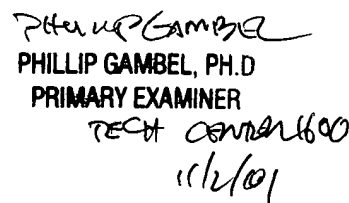 PHILLIP GAMBEL
PHILLIP GAMBEL, PH.D
PRIMARY EXAMINER
TECH CENTER 1600
11/2/01